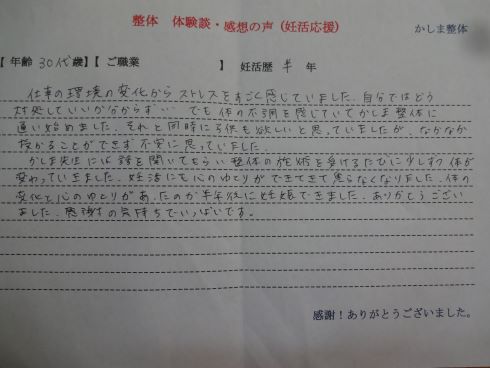 整体 体験談・感想の声（妊活応援）
かしま整体
【年齢 30代歳】【ご職業 】 妊活歴 半 年
仕事の環境の変化からストレスをすごく感じていました。自分ではどう
対処していいか分からず… でも体の不調を感じていてかしま整体に
通い始めました。それと同時に子供も欲しいと思っていましたが、なかなか
授かることができず不安に思っていました。
かしま先生には話を聞いてもらい整体の施術を受けるたびに少しずつ体が
変わっていきました。妊活にも心のゆとりができてきて焦らなくなりました。体の
変化と心のゆとりがあったのか半年後に妊娠できました。ありがとうござい
ました。感謝の気持ちでいっぱいです。
感謝！ありがとうございました。